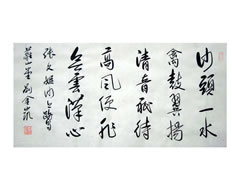 沙頭一水
禽鼓翼揚
清音祗待
高風便非
無雲漢心
張文姬沙上鷺
劉金凱